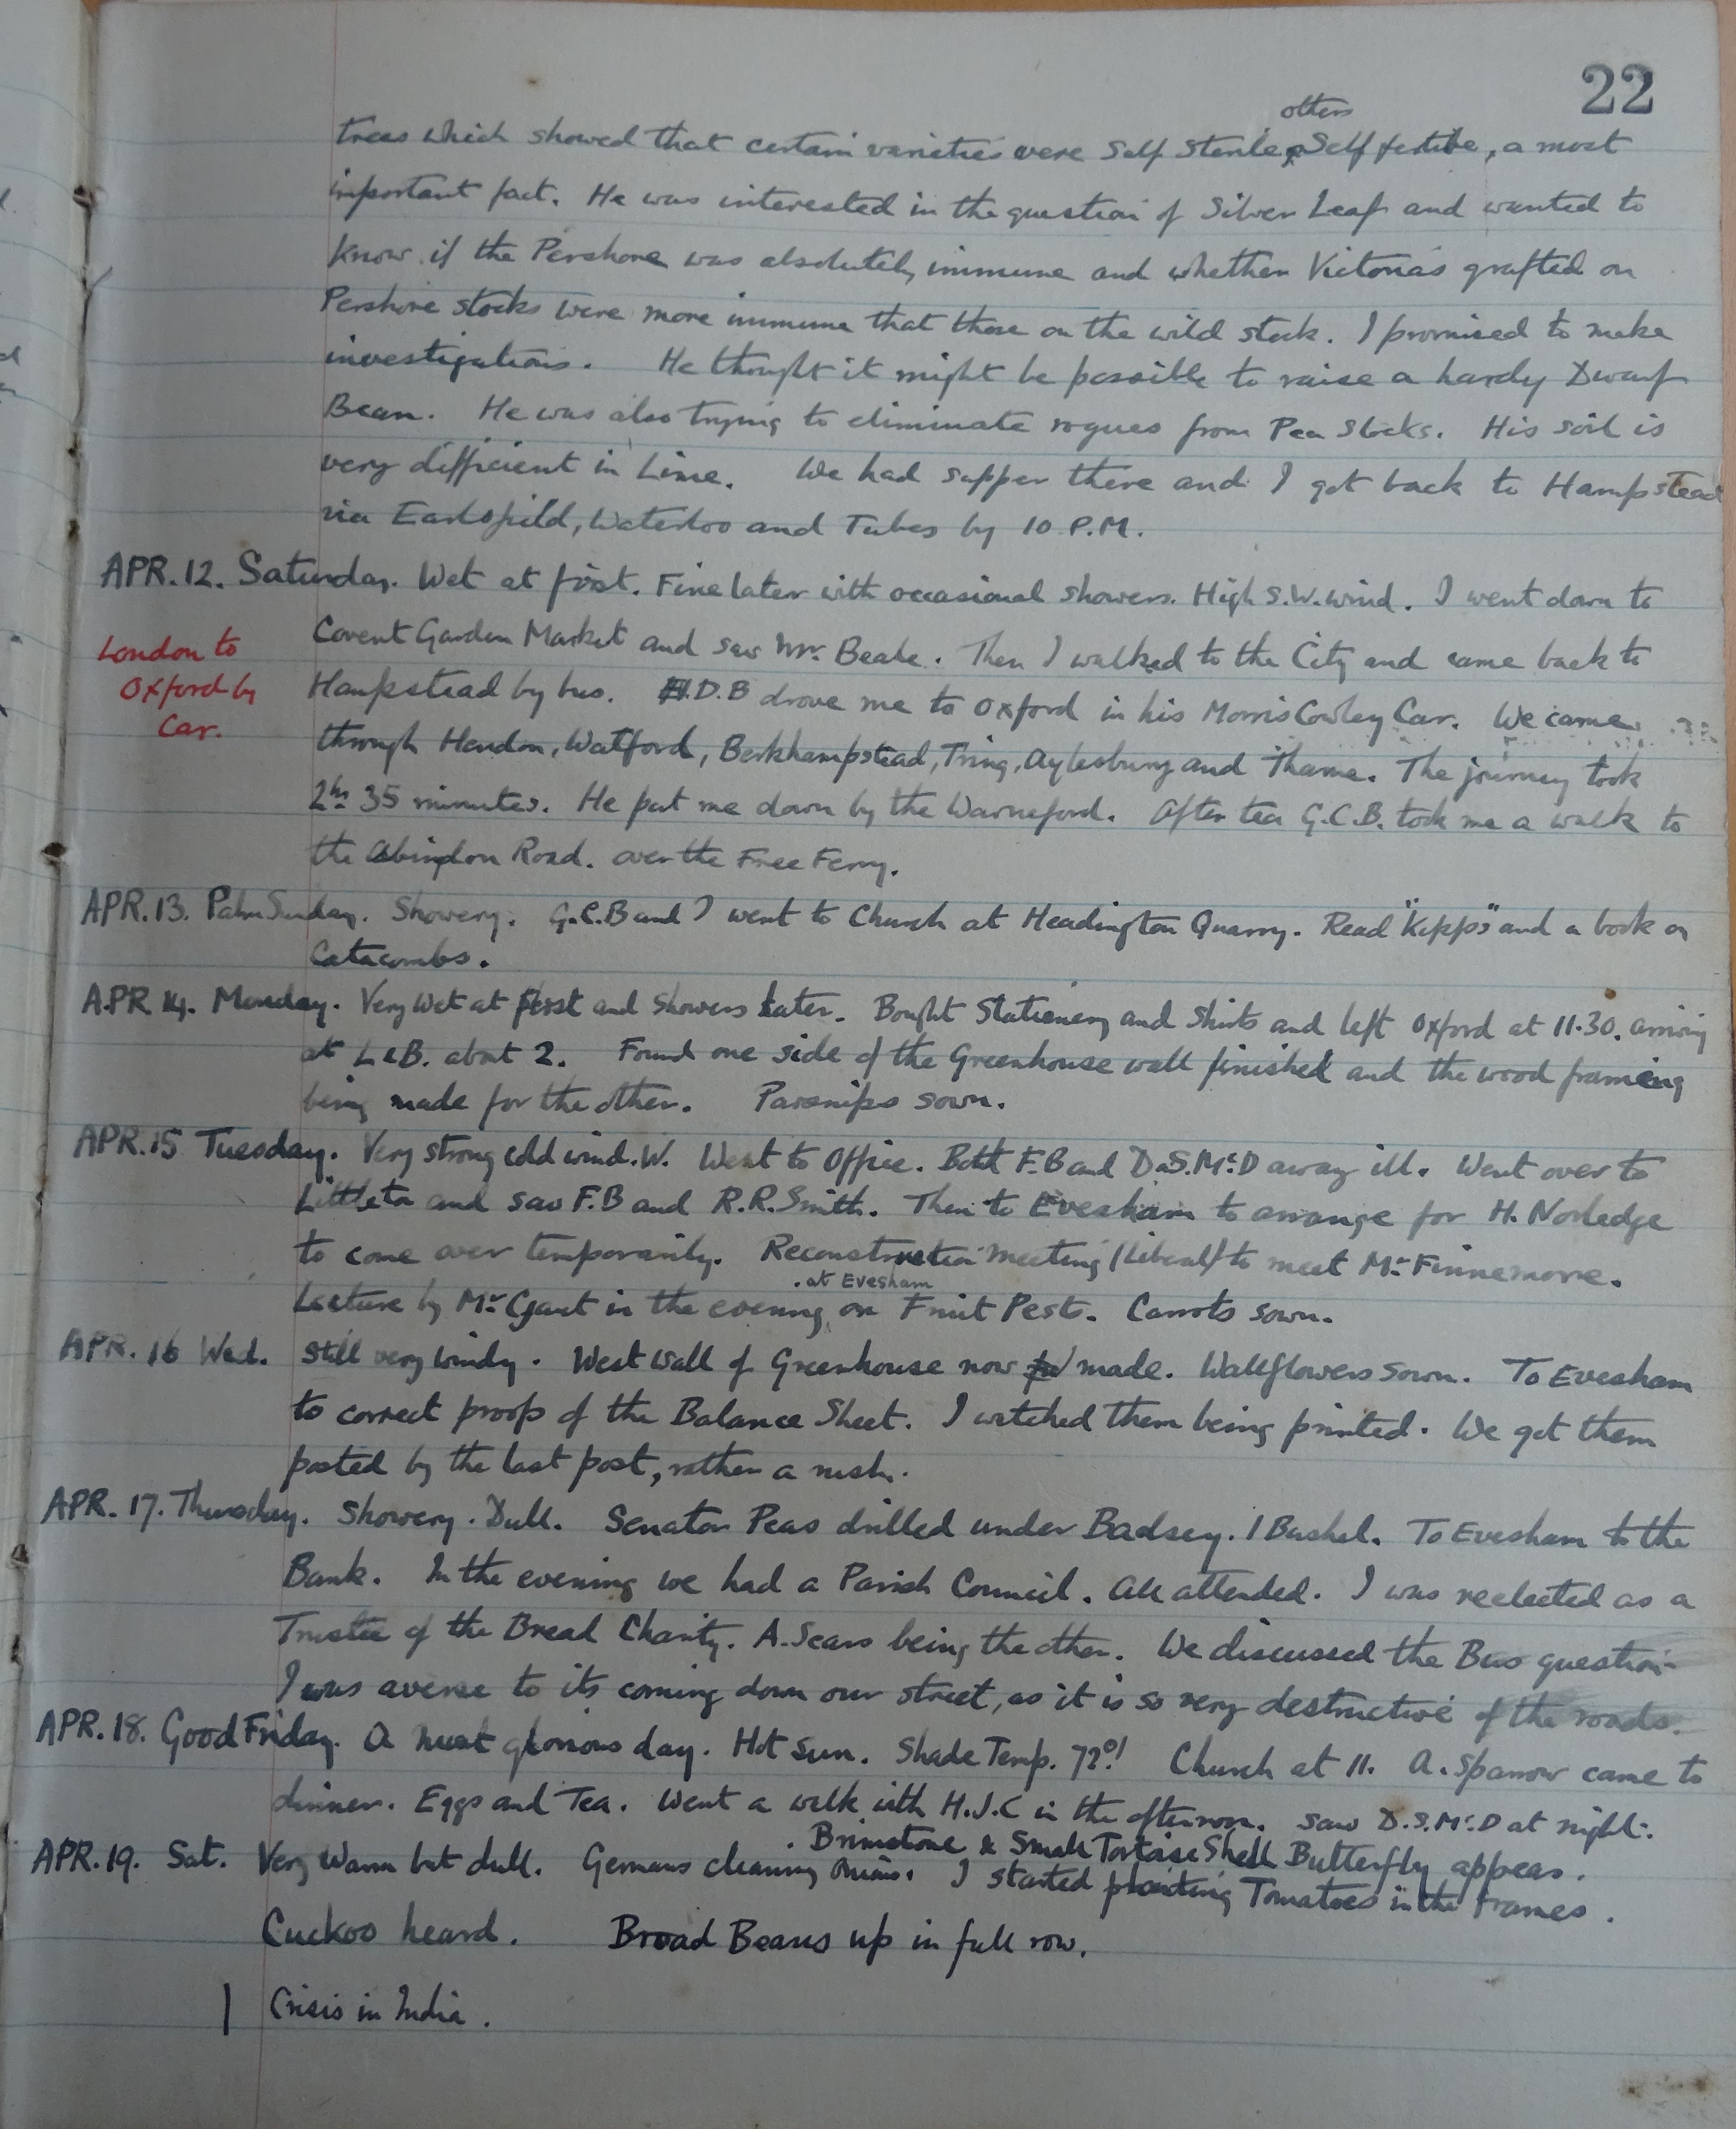 22
others
trees which showed that certain varieties were Self Sterile, Self fertile, a most
important fact. He was interested in the question of Silver Leaf and wanted to
know if the Pershore was absolutely immune and whether Victorias grafted on
Pershore stocks were more immune that those on the wild stock. I promised to make
investigations. He thought it might be possible to raise a hardy Dwarf
Bean. He was also trying to eliminate rogues from Pea Stocks. His soil is
very difficient in Lime. We had supper there and I got back to Hampstead
via Earlsfield, Waterloo and Tubes by 10 P.M.
APR. 12. Saturday. Wet at first. Fine later with occasional showers. High S.W. wind. I went down to
Covent Garden Market and saw Mr. Beale. Then I walked to the City and came back to
London to
Oxford by
Car.
Hampstead by bus. H.D.B drove me to Oxford in his Morris Cowley Car. We came
through Hendon, Watford, Berkhampstead, Tring, Aylesbury and Thame. The journey took
2hrs 35 minutes. He put me down by the Warneford. After tea G.C.B. took me a walk to
the Abingdon Road. over the Free Ferry.
APR. 13. Palm Sunday. Showery. G.C.B and I went to Church at Headington Quarry. Read "Kipps" and a book on
Catacombs.
APR 14. Monday. Very Wet at first and showers later. Bought Stationery and Shirts and left Oxford at 11.30. arriving
at L&B. about 2. Found one side of the Greenhouse wall finished and the wood frameing
being made for the other. Parsnips sown.
APR. 15 Tuesday. Very strong cold wind. W. Went to Office. Both F.B and D.S.McD away ill. Went over to
Littleton and saw F.B and R.R. Smith. Then to Evesham to arrange for H. Norledge
to come over temporarily. Reconstruction Meeting (Liberal) to meet Mr Finnemore.
. at Evesham
Lecture by Mr Gaut in the evening on Fruit Pests. Carrots sown.
APR. 16 Wed. Still very windy. West Wall of Greenhouse now made. Wallflowers sown. To Evesham
to correct proofs of the Balance Sheet. I watched them being printed. We got them
posted by the last post, rather a rush.
APR. 17. Thursday. Showery. Dull. Senator Peas drilled under Badsey. 1 Bushel. To Evesham to the
Bank. In the evening we had a Parish Council. All attended. I was reelected as a
Trustee of the Bread Charity. A. Sears being the other. We discussed the Bus question
I was averse to its coming down our street, as it is so very destructive of the roads.
APR. 18. Good Friday. A most glorious day. Hot Sun. Shade Temp. 72°! Church at 11. A. Sparrow came to
dinner. Eggs and Tea. Went a walk with H.J.C in the afternoon. Saw D.S.McD at night.
. Brimstone & Small Tortoise Shell Butterfly appears.
APR. 19. Sat. Very Warm but dull. Germans cleaning Onions. I started planting Tomatoes in the Frames.
Cuckoo heard. Broad Beans up in full row.
Crisis in India.